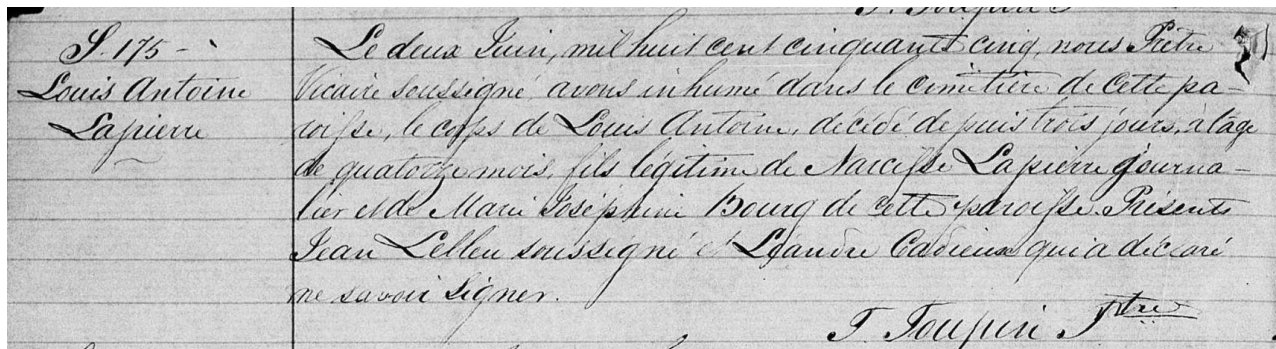 T. Toupin
S. 175 -
Louis Antoine
Lapierre
Le deux Juin, mil huit cent cinquante cinq, nous Prêtre
Vicaire soussigné, avons inhumé dans le cimetière de cette pa-
roisse, le corps de Louis Antoine, décédé depuis trois jours, à l'age
de quatorze mois, fils légitime de Narcisse Lapierre journa-
lier et de Marie Joséphine Bourg de cette paroisse. Présents
Jean Lelleu soussigné et Léandre Cadieux qui a déclaré
ne savoir signer.
T. Toupin Ptre